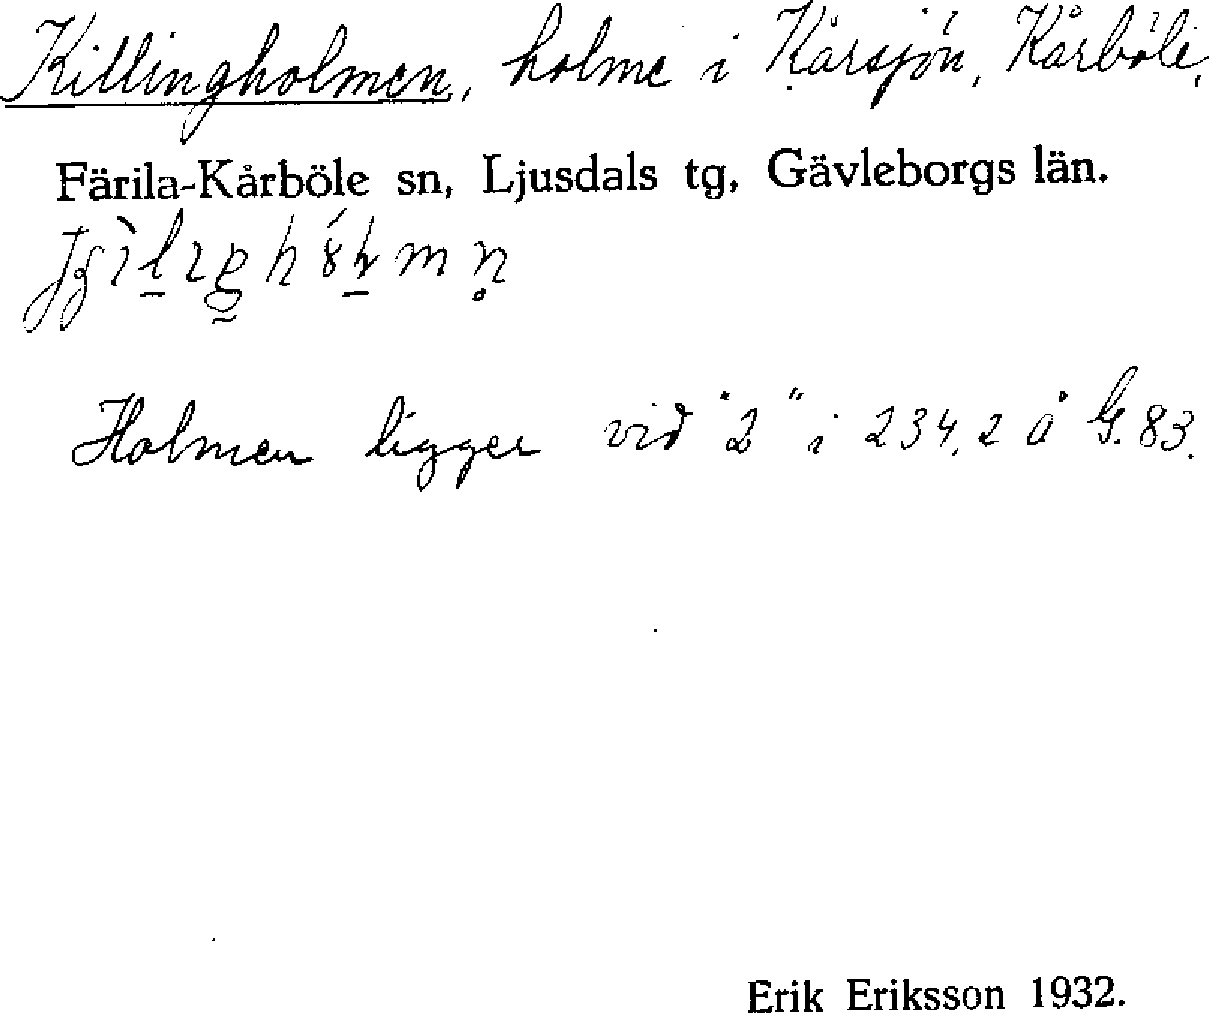 Killingholmen, holme i Kårsjön, Kårböle,
Färila-Kårböle sn, Ljusdals tg, Gävleborgs län.
Holmen ligger vid "2" i 234,2 å G. 83.
Erik Eriksson 1932.